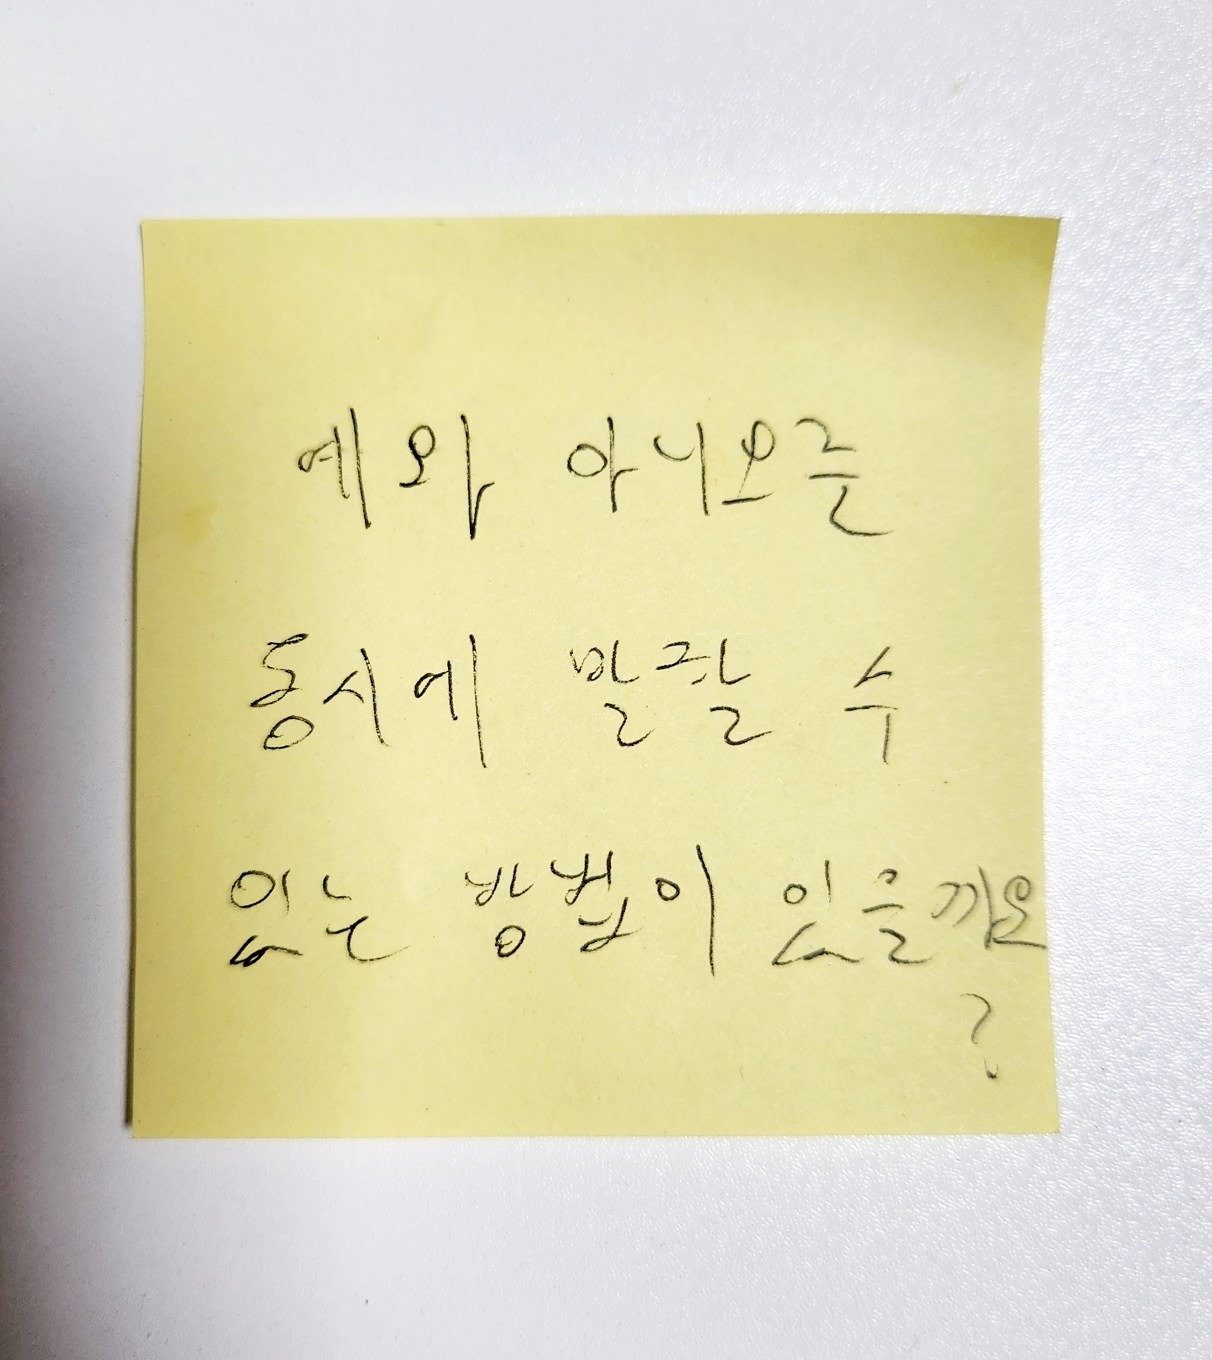 예와 아니오를
동시에 말할 수
있는 방법이 있을까요
?